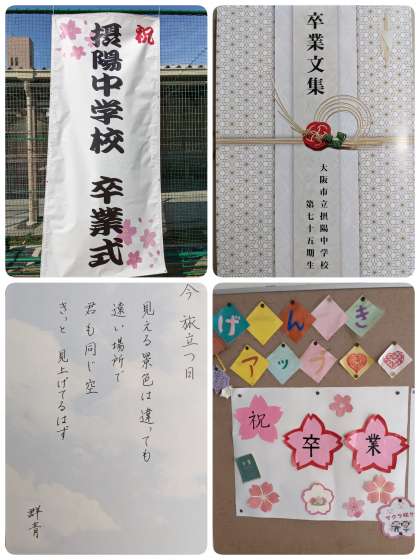 祝
摂陽中学校 卒業式
卒業文集
大阪市立摂陽中学校
第七十五期生
今 旅立つ日
見える景色は違っても
遠い場所で
君も同じ空
きっと 見上げてるはず
群青
げんき
アップ
祝
卒
業